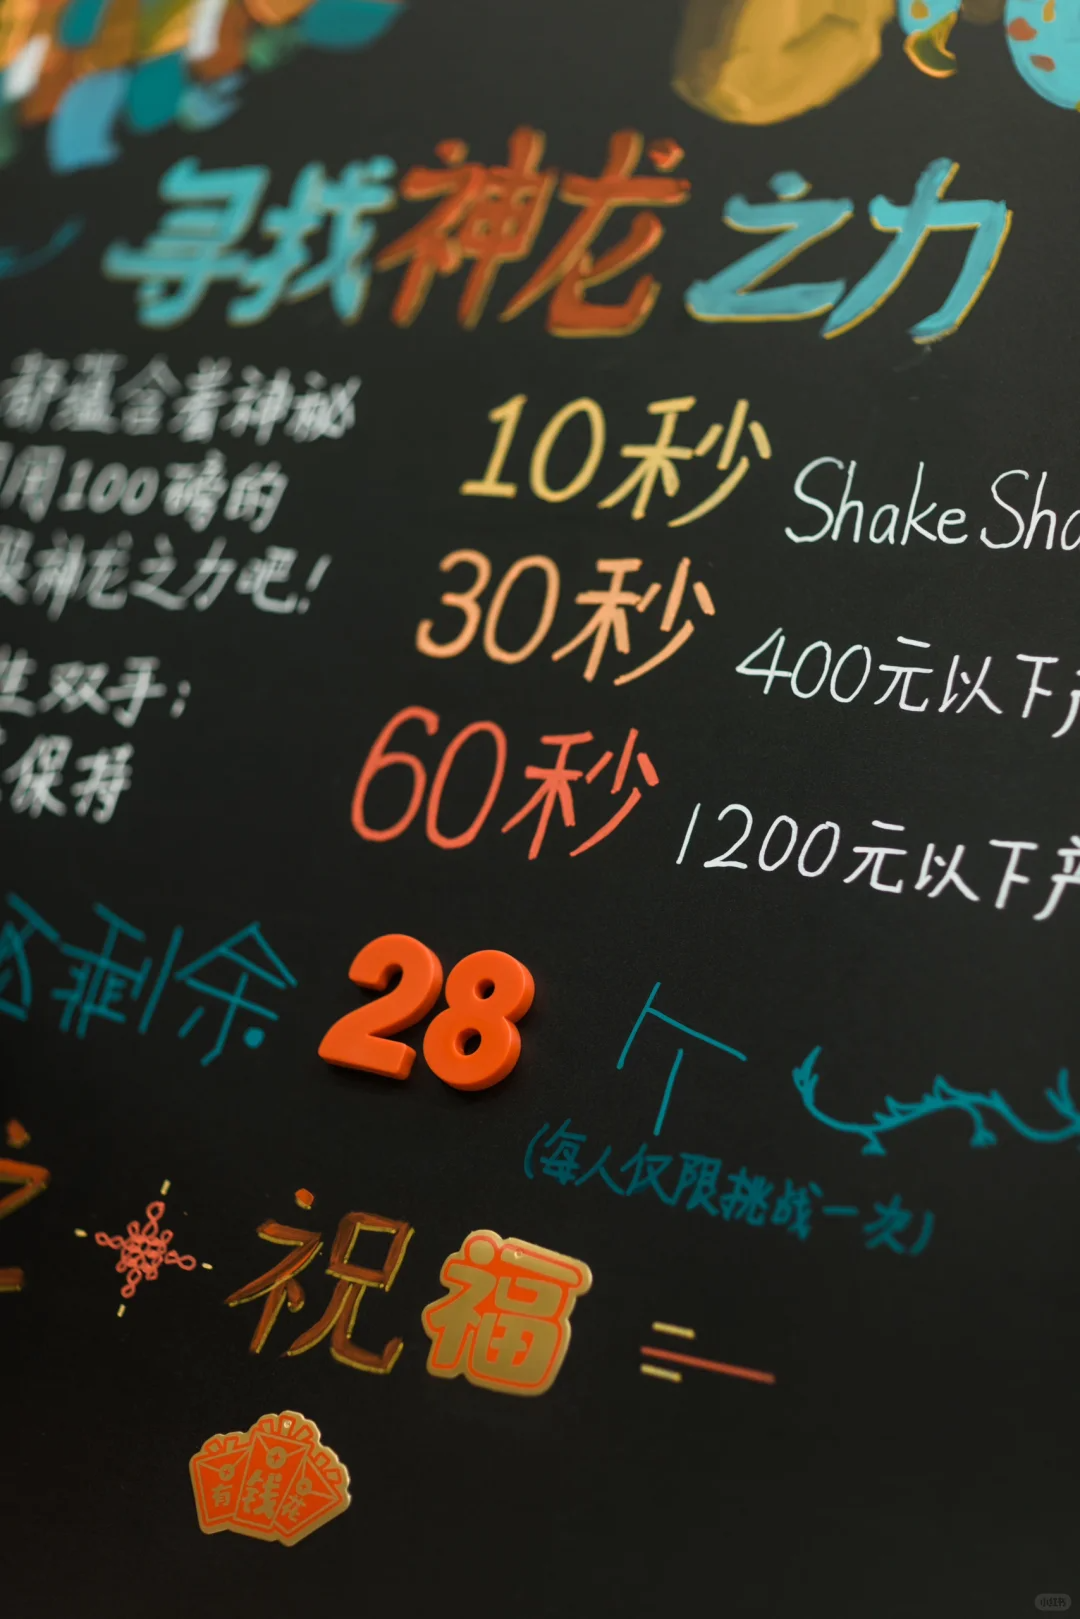 寻找神龙之力
都蕴含着神秘
用100磅的
神龙之力吧!
生双手;
保持
10秒 Shake Sha
30秒 400元以下产
60秒 1200元以下产
剩余 28 个
(每人仅限挑战一次)
之 祝福
有钱花
小红书